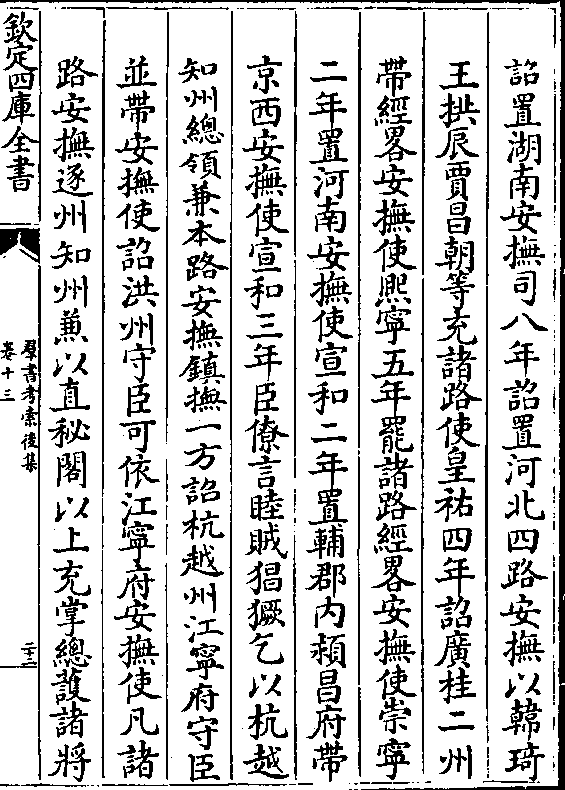 詔置湖南安撫司八年詔置河北四路安撫以韓琦
王拱辰賈昌朝等充諸路使皇祐四年詔廣桂二州
帶經畧安撫使熈寧五年罷諸路經畧安撫使崇寧
二年置河南安撫使宣和二年置輔郡内頴昌府帶
京西安撫使宣和三年臣僚言睦賊猖獗乞以杭越
知州總領兼本路安撫鎮撫一方詔杭越州江寧府守臣
並帶安撫使詔洪州守臣可依江寧府安撫使凡諸
路安撫逐州知州兼以直秘閣以上充掌總護諸將
欽定四庫全書
羣書考索後集
卷十三
二十二